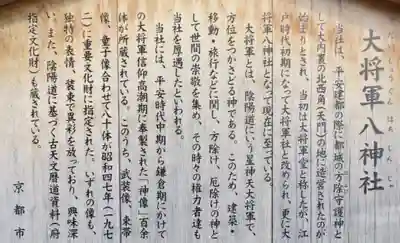 だいしょうぐんはちじんじゃ
大将軍八神社
当社は、平安建都の際に都城の方除守護神と
して大内裏の北西角(天門)の地に造営されたのが
始まりとされ、当初は大将軍堂と称したが、江
戸時代初期になって大将軍社と改められ、更に大
将軍八神社となって現在に至っている。
大将軍とは、陰陽道にいう星神天大将軍で、
方位をつかさどる神である。このため、建築・
移動・旅行などに関し、方除け、厄除けの神と
して世間の崇敬を集め、その時々の権力者達も
当社を厚遇したといわれる。
当社には、平安時代中期から鎌倉期にかけて
の大将軍信仰高潮期に奉製された「神像」百余
体が所蔵されている。このうち、武装像、束帯
像、童子像合わせて八十体が昭和四七年(一九七
二)に重要文化財に指定された。いずれの像も、
独特の表情、装束で異彩を放っており、興味深
い。また、陰陽道に基づく古天文暦道資料(府
指定文化財)も蔵されている。
京都市